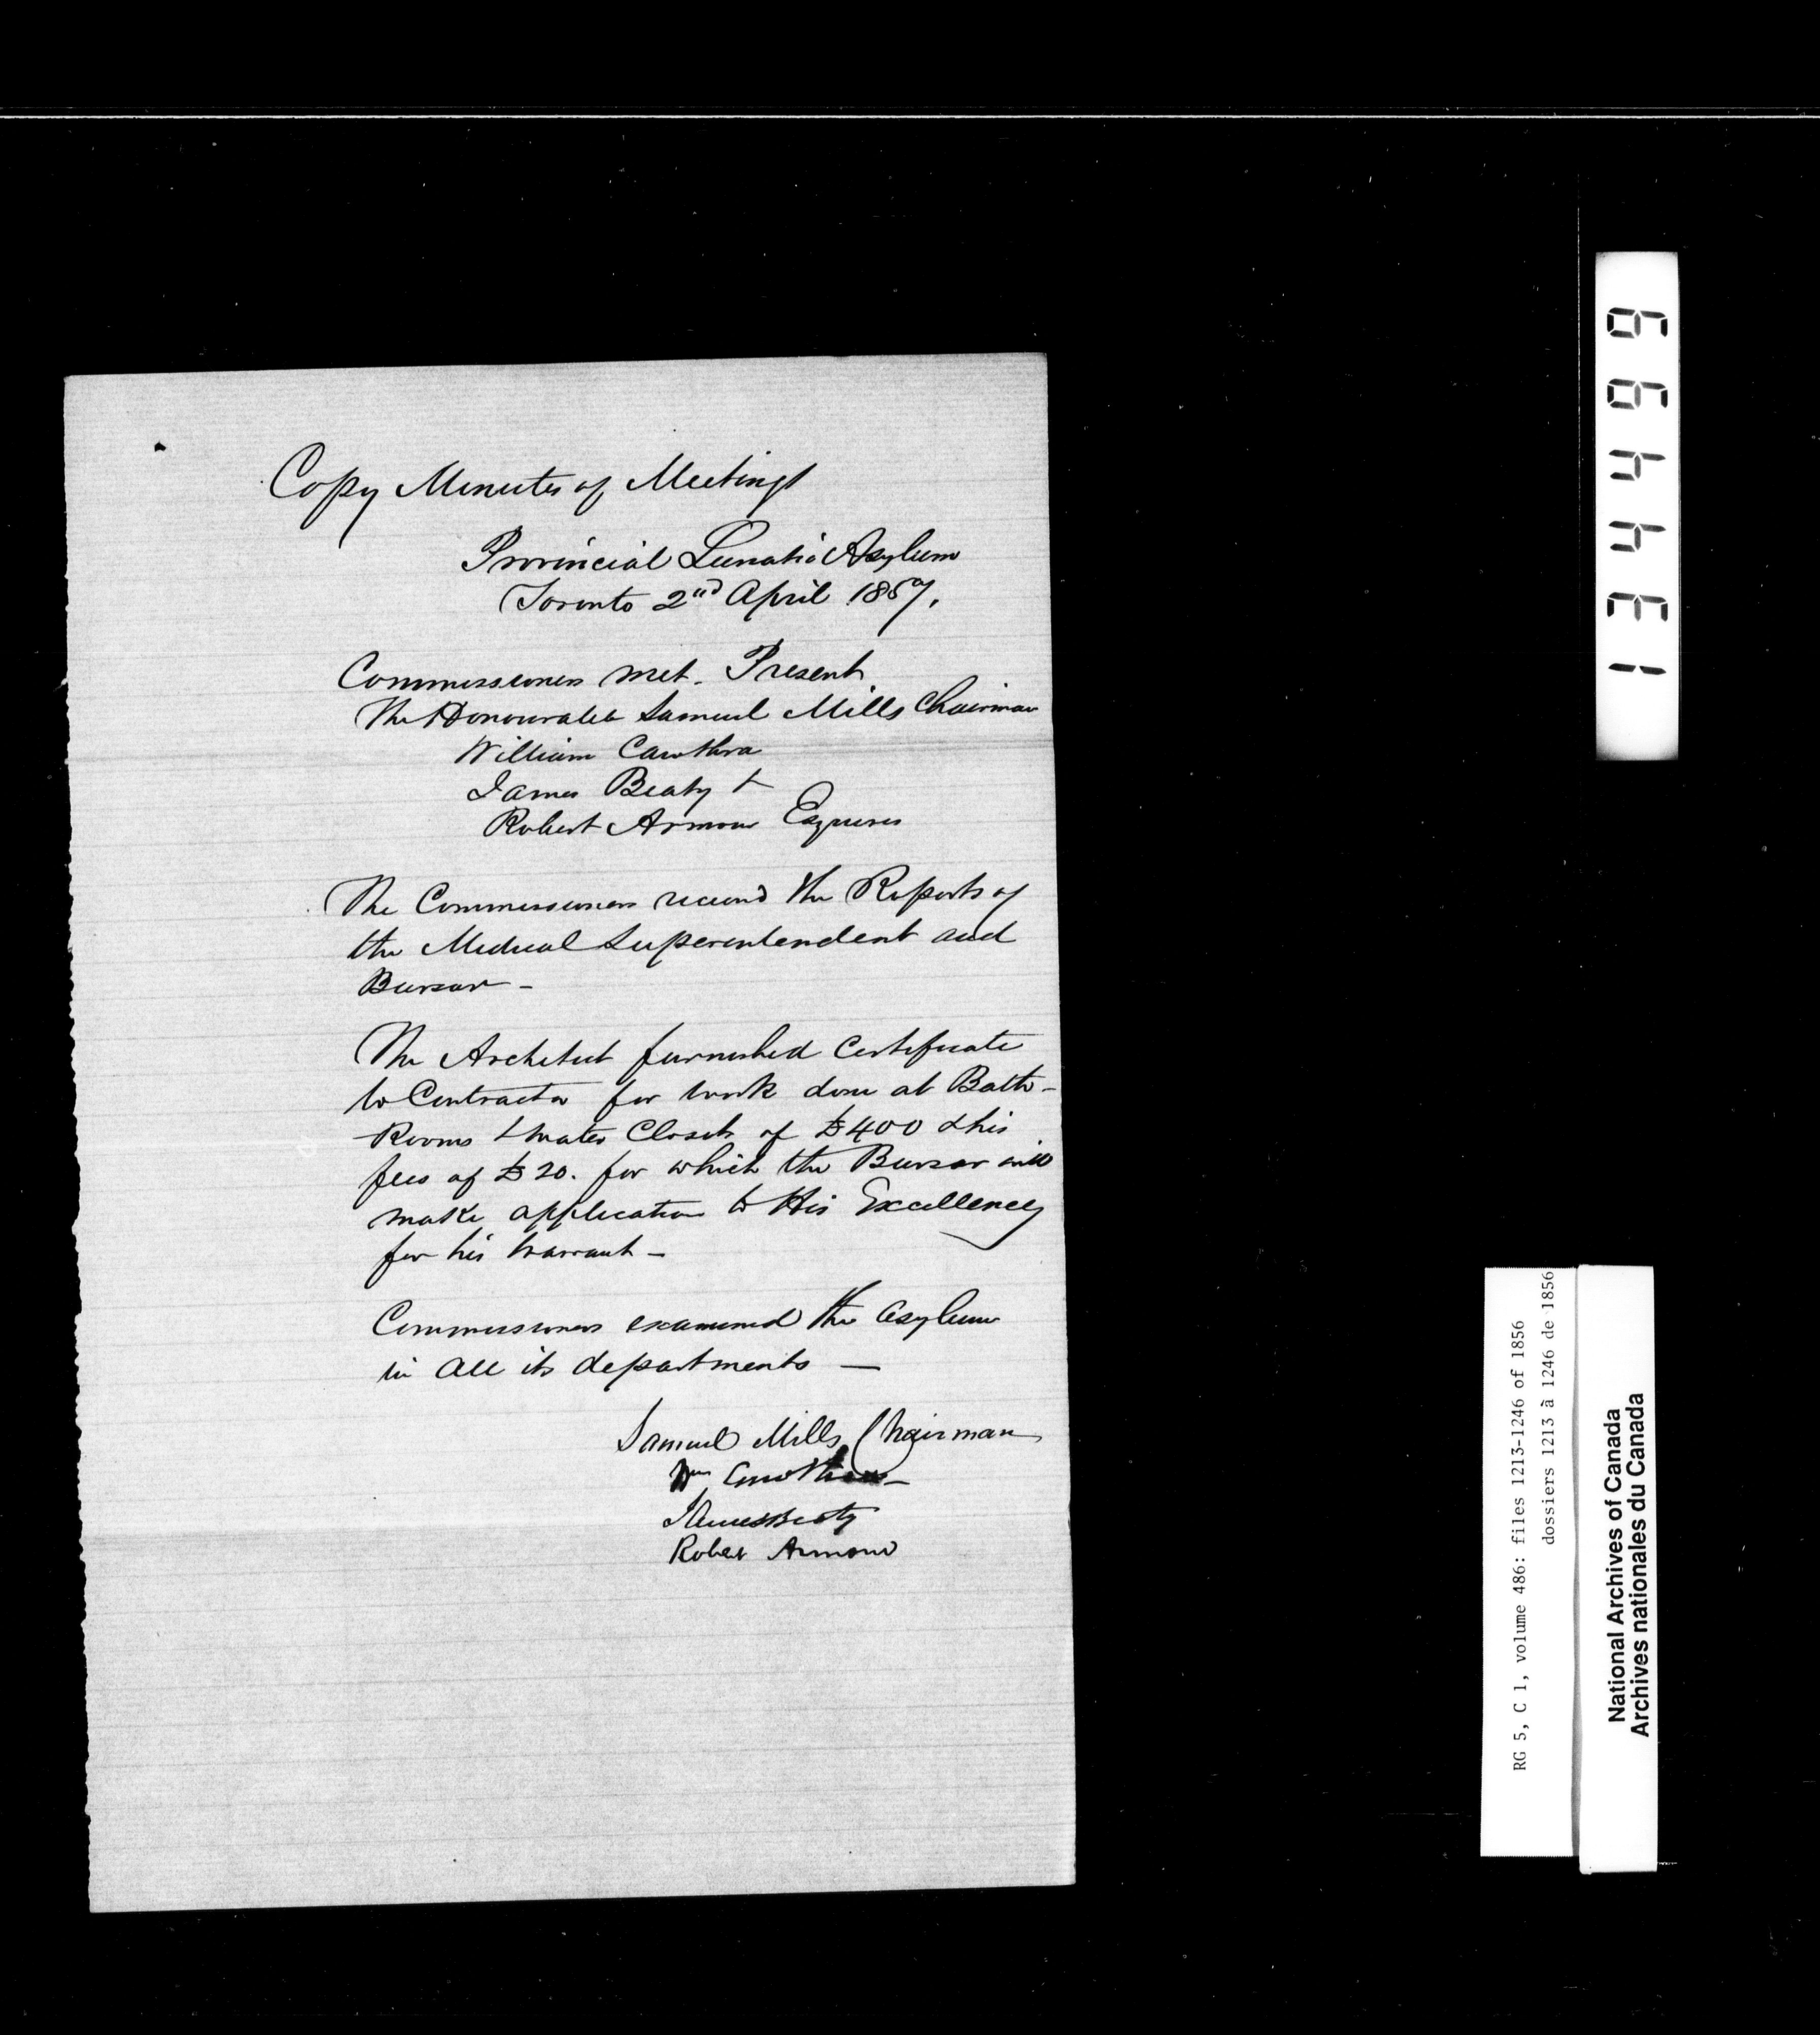 Copy Minutes of Meeting
Provincial Lunatic Asylum
Toronto 2nd April 1857.
Commissioners met. Present
The Honourable Samuel Mills Chairman
William Cawthra
James Beaty &
Robert Armour Esquires
The Commissioners received the Reports of
the Medical Superintendent and
Bursar -
The Architect furnished Certificate
to Contractor for work done at Bath-
Rooms & Water Closets of £400 & his
fees of £20. for which the Bursar will
make application to His Excellency
for his Warrant -
Commissioners examined the Asylum
in all its departments -
Samuel Mills Chairman
Wm Cawthra -
James Beaty
Robert Armour
134499
RG 5, C 1, volume 486: files 1213-1246 of 1856
dossiers 1213 à 1246 de 1856
National Archives of Canada
Archives nationales du Canada